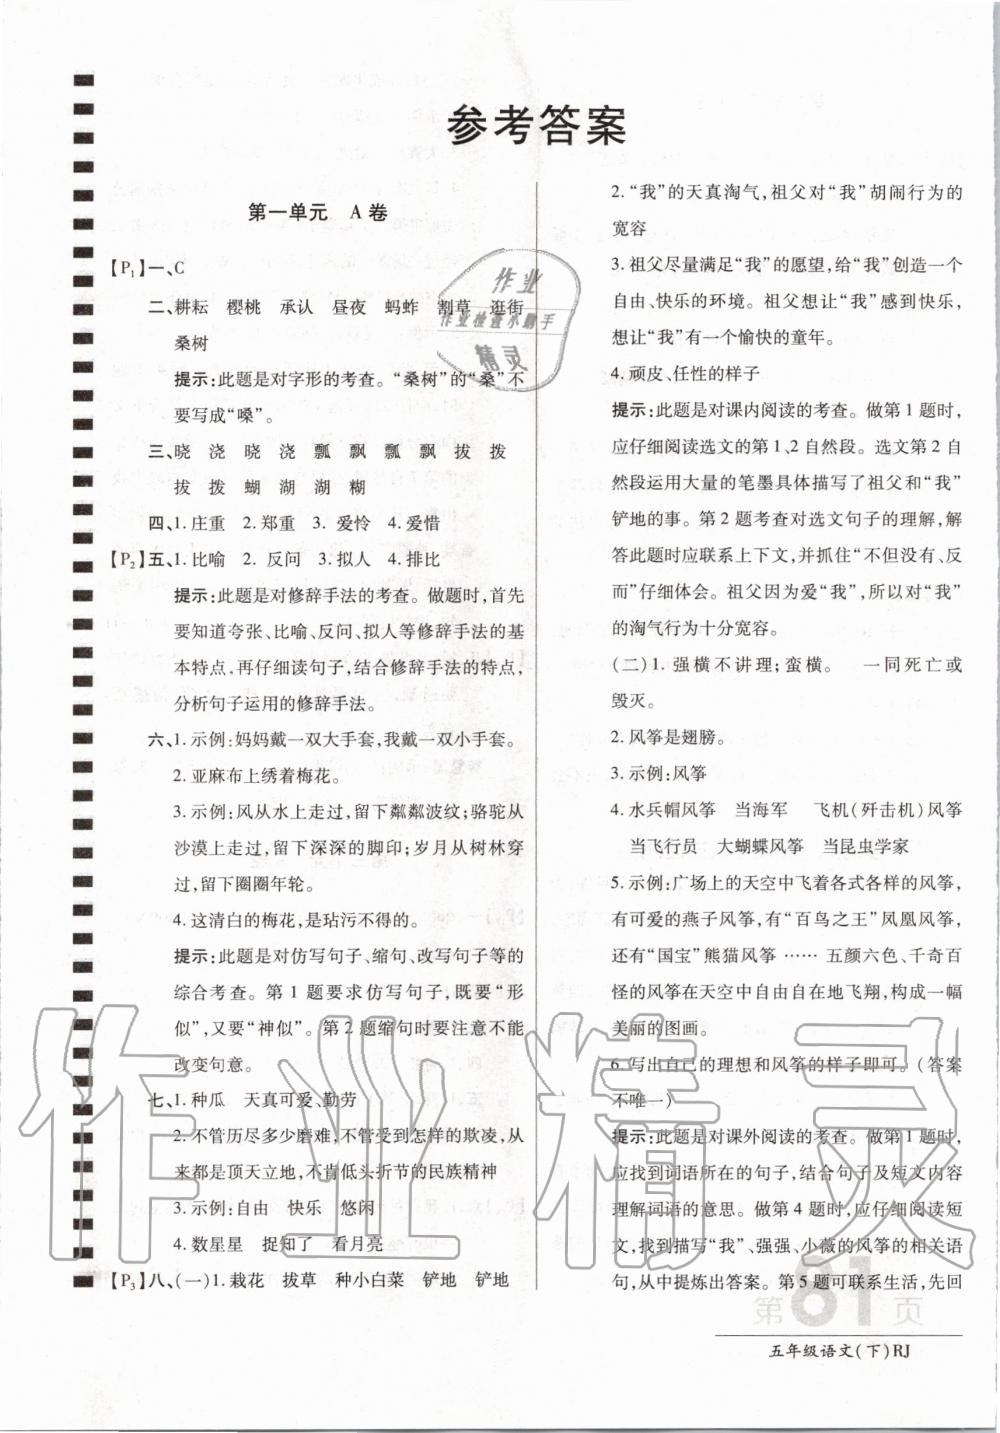 参考答案
第一单元 A 卷
【P₁】一、C
二、耕耘 樱桃 承认 昼夜 蚂蚱 割草 逛街
桑树
提示:此题是对字形的考查。“桑树”的“桑”不
要写成“嗓”。
三、晓 浇 晓 浇 瓢 飘 瓢 飘 拔 拨
拔 拨 蝴 湖 湖 糊
四、1. 庄重 2. 郑重 3. 爱怜 4. 爱惜
【P₂】五、1. 比喻 2. 反问 3. 拟人 4. 排比
提示:此题是对修辞手法的考查。做题时,首先
要知道夸张、比喻、反问、拟人等修辞手法的基
本特点,再仔细读句子,结合修辞手法的特点,
分析句子运用的修辞手法。
六、1. 示例:妈妈戴一双大手套,我戴一双小手套。
2. 亚麻布上绣着梅花。
3. 示例:风从水上走过,留下粼粼波纹;骆驼从
沙漠上走过,留下深深的脚印;岁月从树林走
过,留下圈圈年轮。
4. 这清白的梅花,是玷污不得的。
提示:此题是对仿写句子、缩句、改写句子等的
综合考查。第 1 题要求仿写句子,既要“形
似”,又要“神似”。第 2 题缩句时要注意不能
改变句意。
七、1. 种瓜 天真可爱、勤劳
2. 不管历尽多少磨难,不管受到怎样的欺凌,从
来都是顶天立地,不肯低头折节的民族精神
3. 示例:自由 快乐 悠闲
4. 数星星 捉知了 看月亮
【P₃】八、(一)1. 栽花 拔草 种小白菜 铲地 铲地
2. “我”的天真淘气,祖父对“我”胡闹行为的
宽容
3. 祖父尽量满足“我”的愿望,给“我”创造一个
自由、快乐的环境。祖父想让“我”感到快乐,
想让“我”有一个愉快的童年。
4. 顽皮、任性的样子
提示:此题是对课内阅读的考查。做第 1 题时,
应仔细阅读选文的第 1、2 自然段。选文第 2 自
然段运用大量的笔墨具体描写了祖父和“我”
铲地的事。第 2 题考查对选文句子的理解,解
答此题时应联系上下文,并抓住“不但没有、反
而”仔细体会。祖父因为爱“我”,所以对“我”
的淘气行为十分宽容。
(二)1. 强横不讲理;蛮横。 一同死亡或
毁灭。
2. 风筝是翅膀。
3. 示例:风筝
4. 水兵帽风筝 当海军 飞机(歼击机)风筝
当飞行员 大蝴蝶风筝 当昆虫学家
5. 示例:广场上的天空中飞着各式各样的风筝,
有可爱的燕子风筝,有“百鸟之王”凤凰风筝,
还有“国宝”熊猫风筝……五颜六色、千奇百
怪的风筝在天空中自由自在地飞翔,构成一幅
美丽的图画。
6. 写出自己的理想和风筝的样子即可。(答案
不唯一)
提示:此题是对课外阅读的考查。做第 1 题时,
应找到词语所在的句子,结合句子及短文内容
理解词语的意思。做第 4 题时,应仔细阅读短
文,找到描写“我”、强强、小薇的风筝的相关语
句,从中提炼出答案。第 5 题可联系生活,先回
第81页
五年级语文(下)RJ
作业
作业检查小帮手
精灵
作业精灵